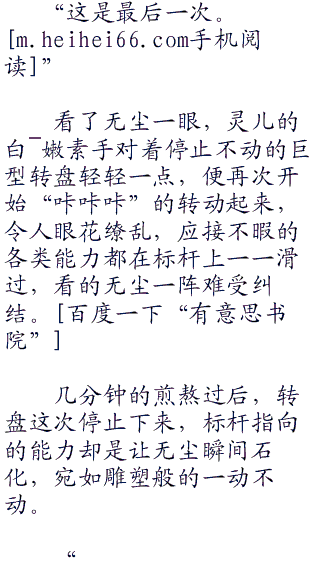 “这是最后一次。
[m.heihei66.com手机阅
读]”
看了无尘一眼，灵儿的
白¯嫩素手对着停止不动的巨
型转盘轻轻一点，便再次开
始“咔咔咔”的转动起来，
令人眼花缭乱，应接不暇的
各类能力都在标杆上一一滑
过，看的无尘一阵难受纠
结。[百度一下“有意思书
院”]
几分钟的煎熬过后，转
盘这次停止下来，标杆指向
的能力却是让无尘瞬间石
化，宛如雕塑般的一动不
动。
“